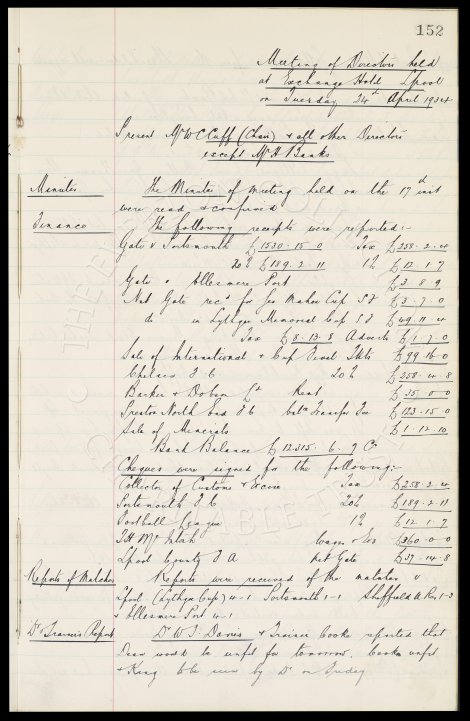 152
Meeting of Directors held
at Exchange Hotel L'pool
on Tuesday 24th April 1934
Present Mr W C Cuff (Chair) & all other Directors
except Mr H Banks
Minutes The Minutes of Meeting held on the 17th inst
were read & confirmed
Finance The following receipts were reported:-
Gate v Portsmouth £1530 - 15 - 0 Tax £258 - 2 - 4
20% £189 - 2 - 11 1% £12 - 1 - 7
Gate v Ellesmere Port £3 - 8 - 9
Net Gate recd for Geo Mahon Cup S F £3 - 7 - 0
do in Lythgoe Memorial Cup S F £49 - 11 - 4
Tax £8 - 13 - 8 Adverts £1 - 7 - 0
Sale of International & Cup Final Tkts £99 - 16 - 0
Chelsea F C 20% £258 - 4 - 8
Barker & Dobson Ld Rent £35 - 0 - 0
Preston North End F C balce Transfer Fee £123 - 15 - 0
Sale of Minerals £1 - 12 - 10
Bank Balance £12,315 - 6 - 9 Cr
Cheques were signed for the following:-
Collector of Customs & Excise Tax £258 - 2 - 4
Portsmouth F C 20% £189 - 2 - 11
Football League 1% £12 - 1 - 7
T H McIntosh Wages & Exs £360 - 0 - 0
L'pool County F A Net Gate £37 - 14 - 8
Reports of Matches Reports were received of the matches v
L'pool (Lythgoe Cup) 4-1 Portsmouth 1-1 Sheffield U Res 1-3
& Ellesmere Port 4-1
Dr & Trainers Report Dr W J Davis & Trainer Cooke reported that
Dean would be unfit for tomorrow, unfit
& King to be seen by Dr on Friday